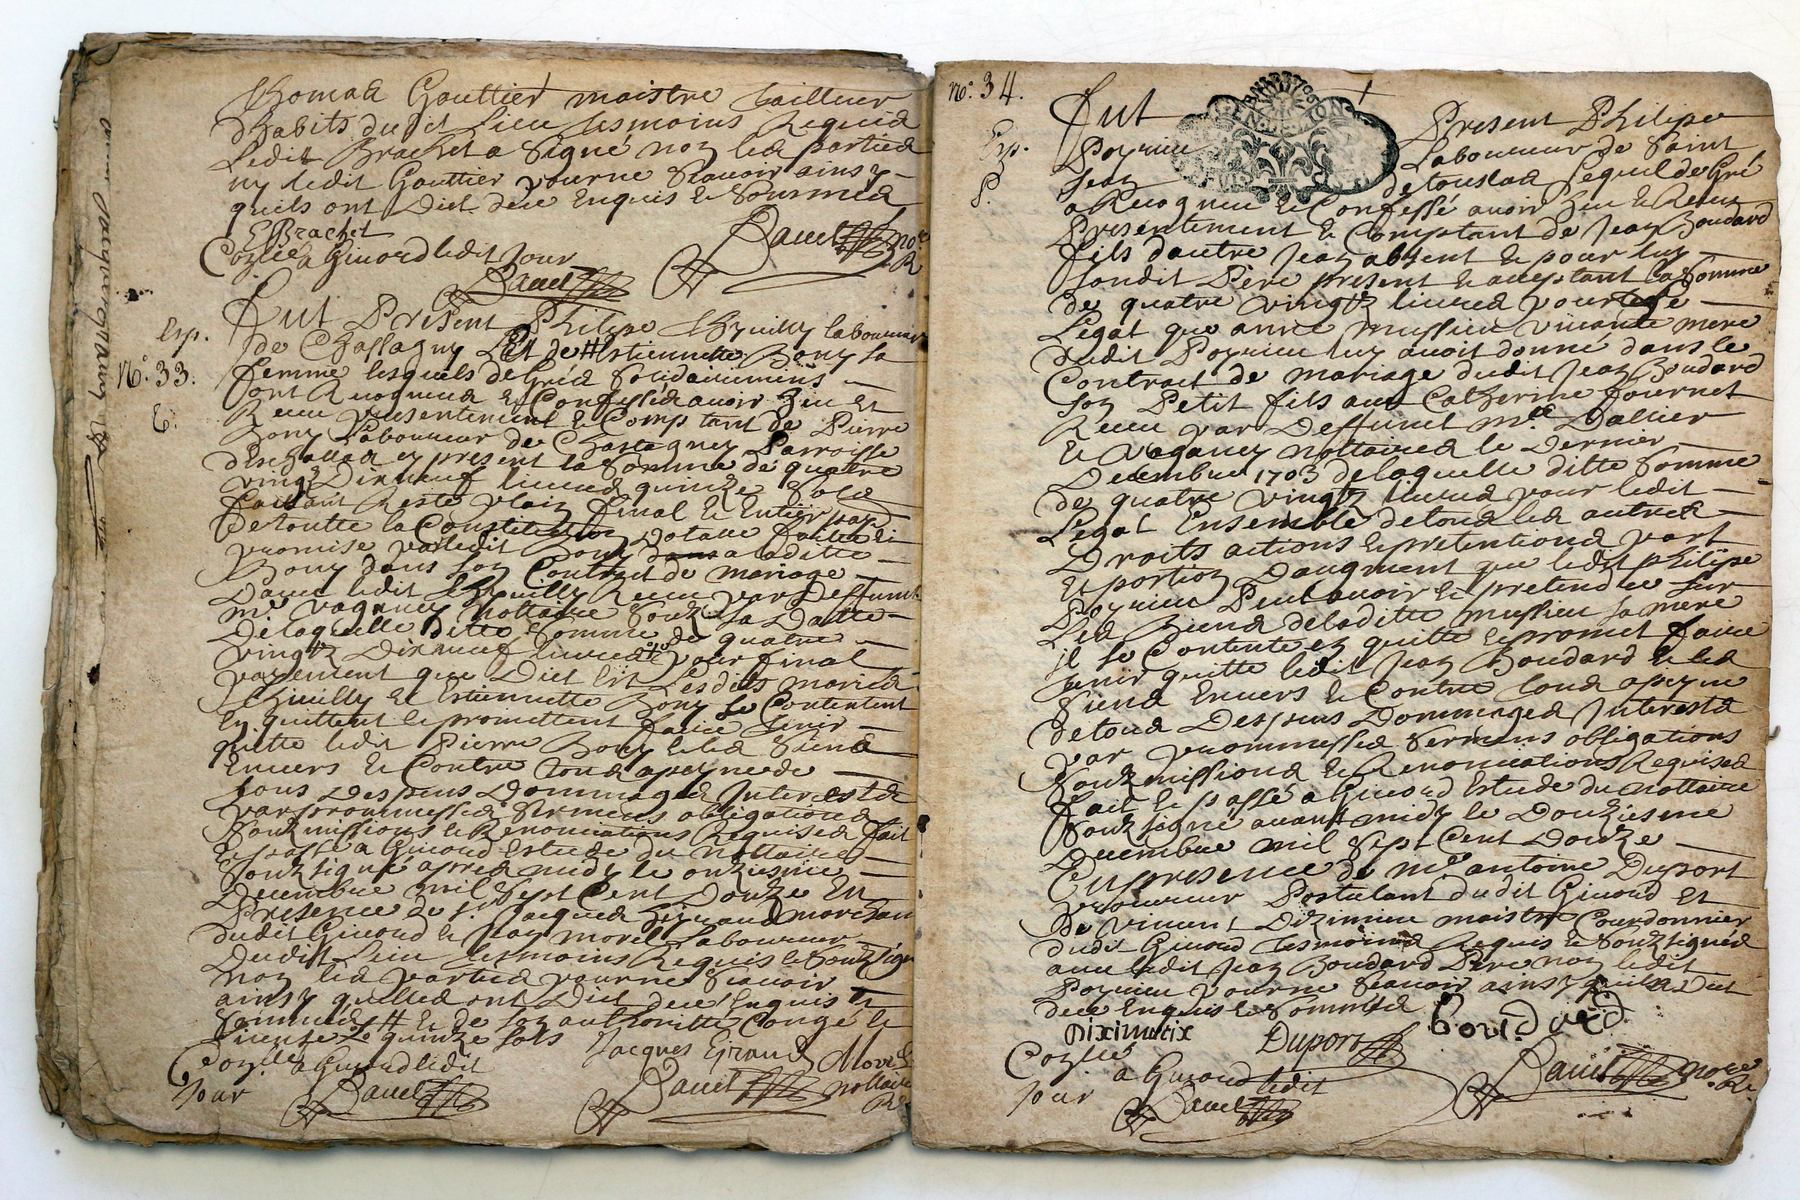 Thomas Gauttier maistre tailleur
d'habits dudit Lieu tesmoins Requis
Ledit Brachet a Signé non les parties
ny ledit Gauttier pour ne Scavoir ainsy
quils ont Dict de ce Enquis et Sommés
E Brachet
Bauet no.re R.
Cozllé a Giuord ledit Jour
Bauet
Esp.
N.° 33.
Fut Present Philipe Thyuilly laboureur
de Chassagny Et de # Estiennette Bony sa
femme lesquels de Gré Solidairement
ont Recognus et Confessé auoir Heu et
Receu presentement et Comptant de Pierre
Bony Laboureur de Chassagny Parroisse
present la Somme de quatre
vingt Dix neuf liures quinze Sols
faisant Reste plain final et Entier
de toutte la Constitution Dotalle faitte et
promise par ledit Bony a laditte
Bony dans son Contract de mariage
Dauec ledit Thyuilly Receu par Deffunt
m.e vaganey nottaire Soubz Sa Datte
De laquelle ditte Somme de quatre
vingtz Dix neuf liures pour final
payement que Dict Est Lesdits mariés
Thiuilly et Estiennette Bony Se Contentent
En quittent et promettent faire tenir
quitte ledit Pierre Bony et les Siens
Enuers et Contre tous a peyne de
tous Despens Dommages Interests
par prommesses Sermens obligations
Soubzmissions et Renonciations Requises fait
et passé a Giuord Estude du Nottaire
Soubzsigné apres midy le onziesme
Decembre mil Sept Cent Douze En
Presence de s.r Jacques Giraud marchan
dudit Giuord et Jean morel Laboureur
Dudit Lieu tesmoins Requis et Soubzsigne
non les parties pour ne Scauoir
ainsy quelles ont Dict de ce Enquis et
Sommés # et de son authoritté Congé et
Licence quinze sols
Jacques Giraud Morel
Cozllé a Giuord ledit Jour
Bauet
Bauet nottaire R.
N.° 34.
Esp.
Fut Present Philipe
Poyrieu Laboureur de Saint
Jean de touslas Lequel de Gré
a Recognu et Confessé auoir Heu et Receu
Presentement et Comptant de Jean Boudard
fils d'autre Jean absent et pour luy
sondit Père present et acceptant la Somme
de quatre vingtz liures pour
Légat que anne mussieu viuante mere
dudit Poyrieu luy auoit donné dans le
Contrat de mariage dudit Jean Boudard
son Petit fils auec Catherine fournet
Receu par Deffunct m.e Dallier
et vaganey nottaires le Dernier
Decembre 1703 de laquelle ditte Somme
de quatre vingtz liures pour ledit
Légat Ensemble de tous les autres
Droits actions et pretentions part
Et portion Daugment que ledit philipe
Poyrieu Peut auoir et pretendre Sur
Les Biens de laditte mussieu sa mere
jl se Contente en quitte et promet faire
tenir quitte ledit Jean Boudard et les
siens Enuers et Contre tous a peyne
de tous Despens Dommages Interests
par prommesses Sermens obligations
Soubzmissions et Renonciations Requises
fait et passé a Giuord Estude du nottaire
Soubzsigné auant midy le Douziesme
Decembre mil Sept Cent Douze
En presence de m.e antoine Duport
procureur Postulant dudit Giuord Et
de vincent Diximieu maistre Courdonnier
dudit Giuord tesmoins Requis et Soubzsignés
auec ledit Jean Boudard Père non ledit
Poyrieu pour ne Scauoir ainsy quil a Dict
de ce Enquis et Sommés
Diximieix Duport
Cozllé a Giuord ledit Jour
Bauet
Bauet nore R.